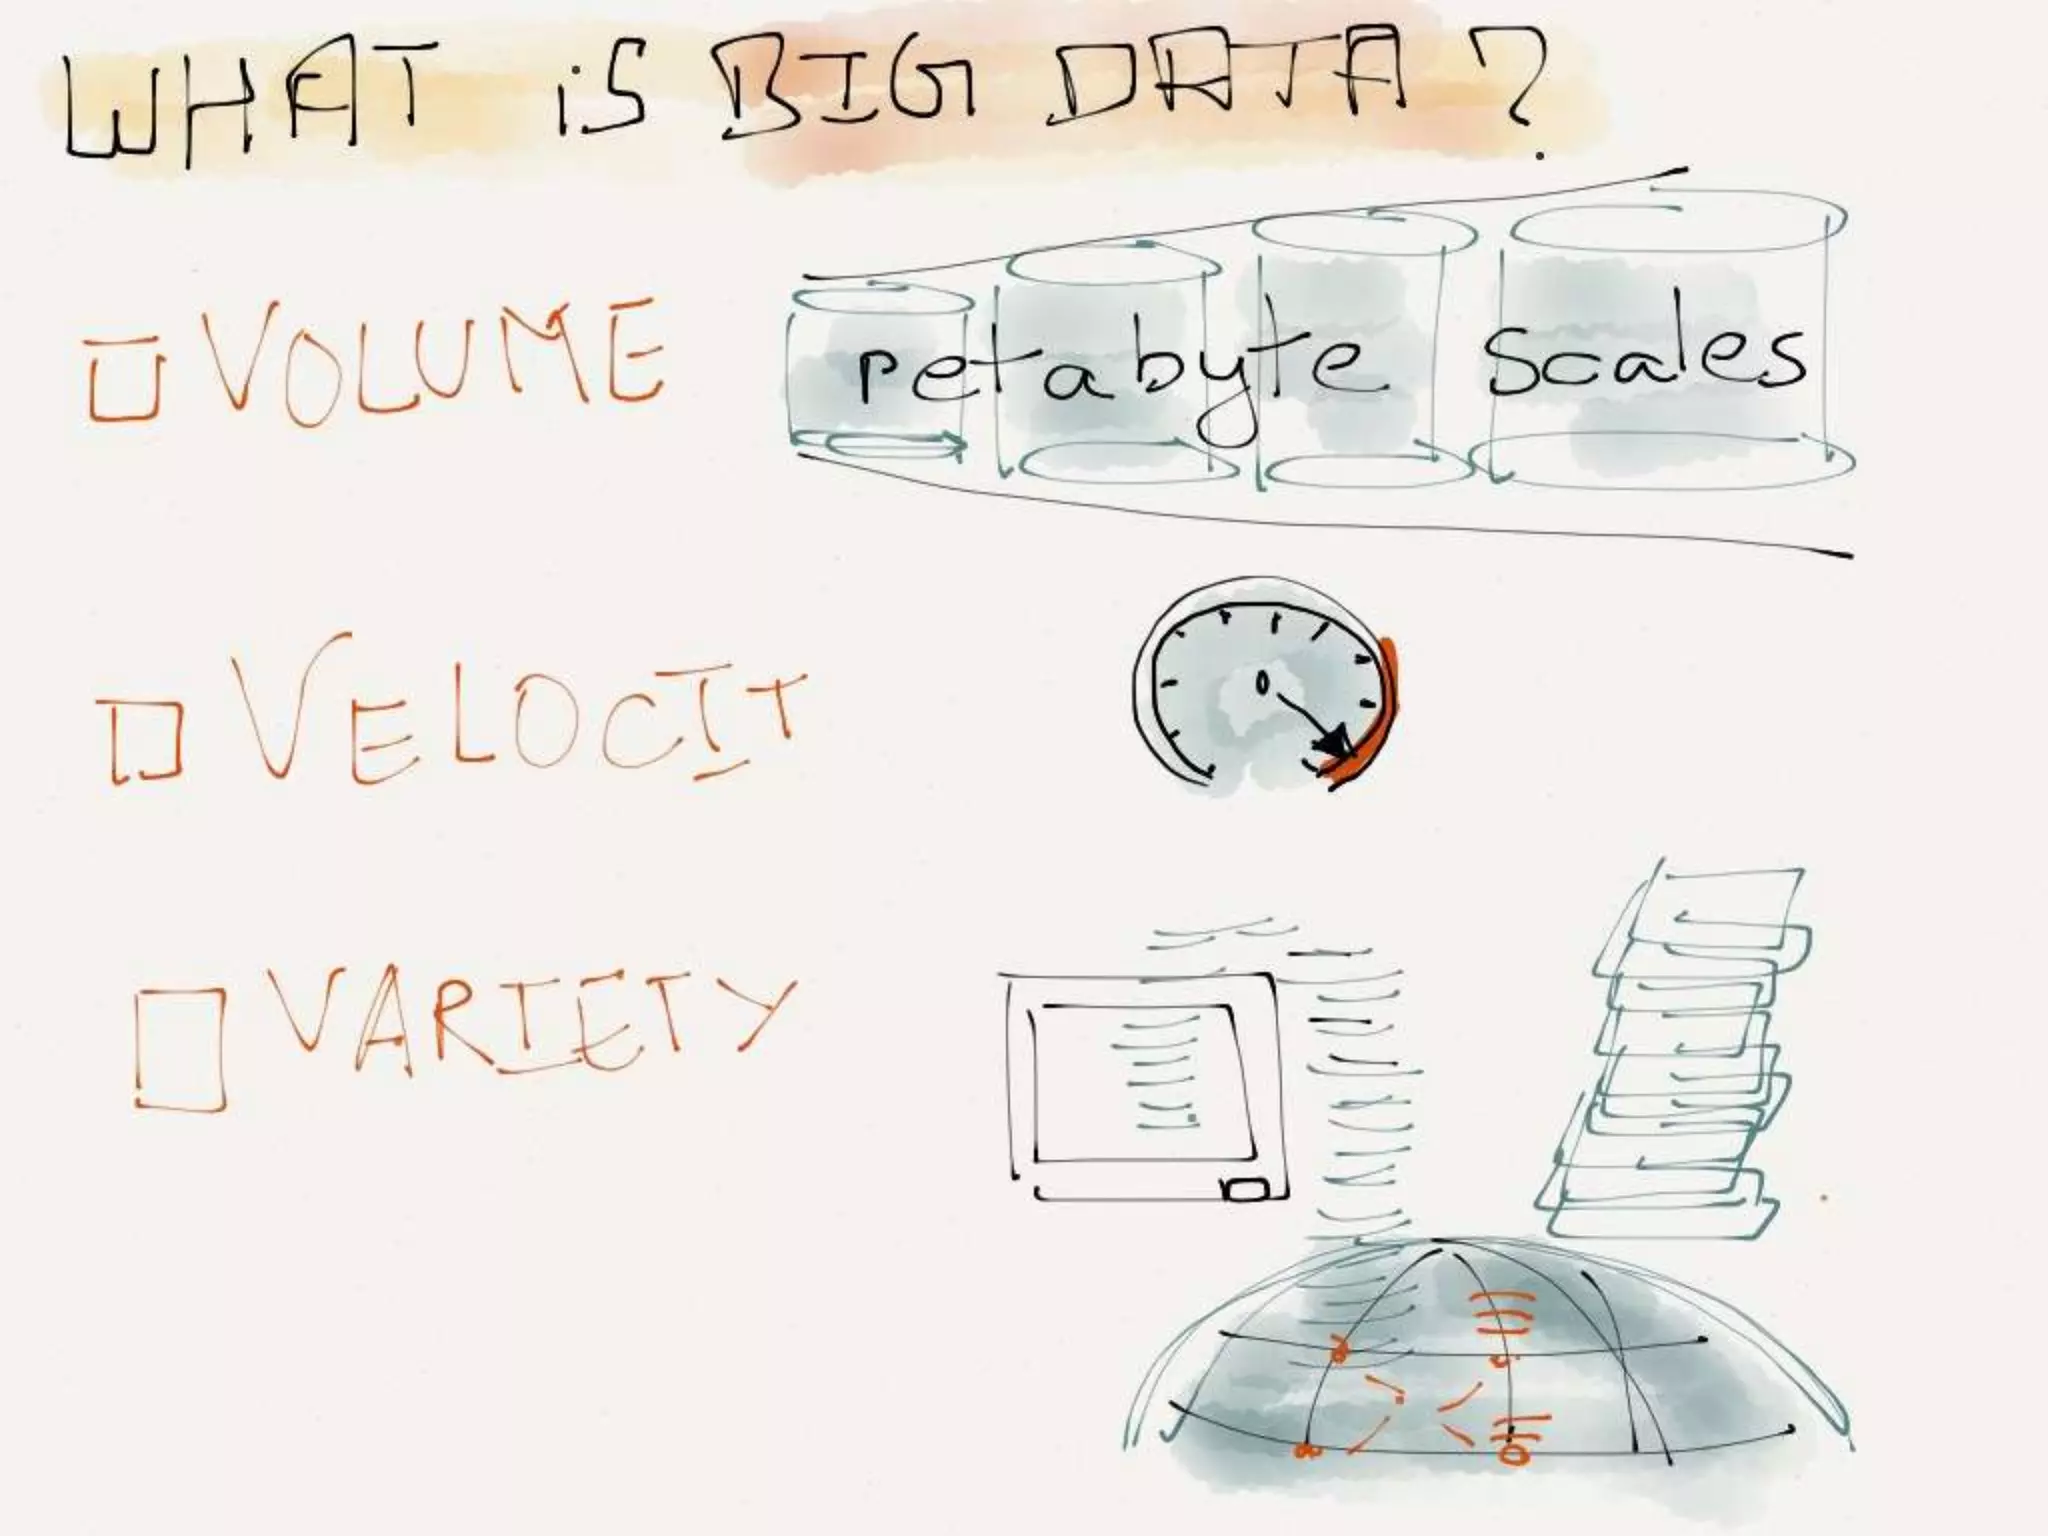 WHAT iS BIG DATA?
VOLUME
petabyte scales
VELOCIT
VARIETY